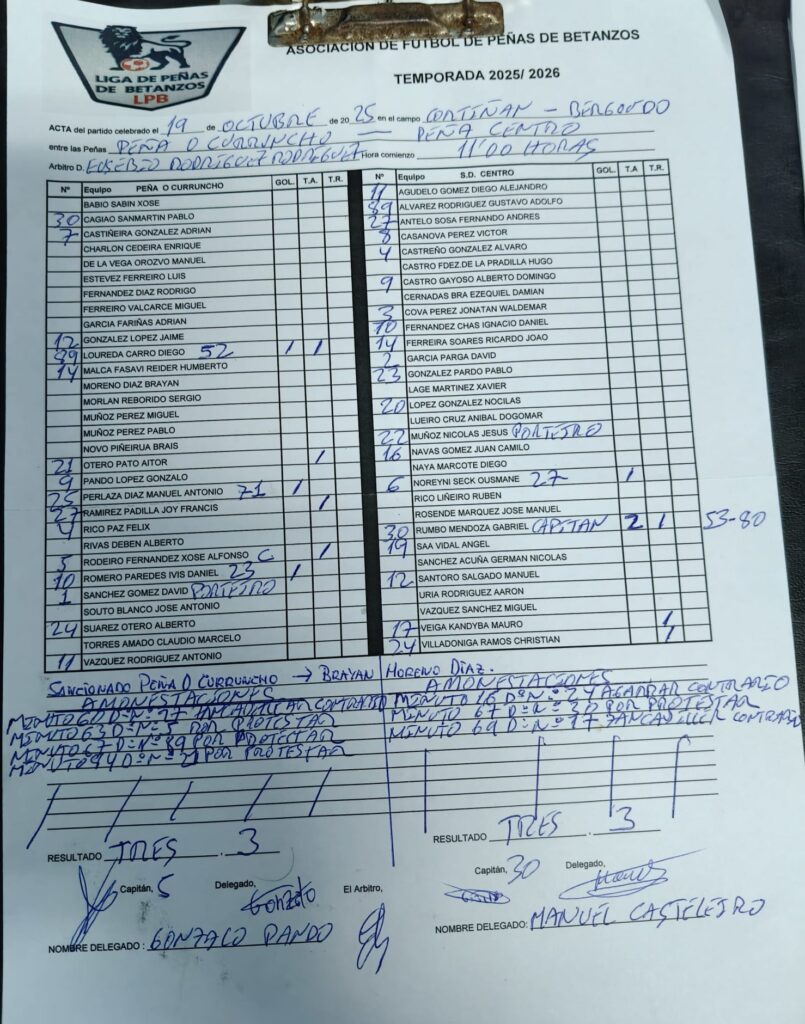 LIGA DE PEÑAS
DE BETANZOS
LPB
ASOCIACION DE FUTBOL DE PEÑAS DE BETANZOS
TEMPORADA 2025/ 2026
ACTA del partido celebrado el 19 de OCTUBRE de 2025 en el campo CORTIÑAN - BERGONDO
entre las Peñas PEÑA O CURRUNCHO — PEÑA CENTRO
Arbitro D. EUSEBIO RODRIGUEZ RODRIGUEZ Hora comienzo 11'00 HORAS
Nº Equipo PEÑA O CURRUNCHO GOL. T.A. T.R.
BABIO SABIN XOSE
30 CAGIAO SANMARTIN PABLO
7 CASTIÑEIRA GONZALEZ ADRIAN
CHARLON CEDEIRA ENRIQUE
DE LA VEGA OROZVO MANUEL
ESTEVEZ FERREIRO LUIS
FERNANDEZ DIAZ RODRIGO
FERREIRO VALCARCE MIGUEL
GARCIA FARIÑAS ADRIAN
12 GONZALEZ LOPEZ JAIME
89 LOUREDA CARRO DIEGO 52 / /
14 MALCA FASAVI REIDER HUMBERTO
MORENO DIAZ BRAYAN
MORLAN REBORIDO SERGIO
MUÑOZ PEREZ MIGUEL
MUÑOZ PEREZ PABLO
NOVO PIÑEIRUA BRAIS
21 OTERO PATO AITOR /
9 PANDO LOPEZ GONZALO
25 PERLAZA DIAZ MANUEL ANTONIO 71 /
27 RAMIREZ PADILLA JOY FRANCIS /
4 RICO PAZ FELIX
RIVAS DEBEN ALBERTO
5 RODEIRO FERNANDEZ XOSE ALFONSO C /
10 ROMERO PAREDES IVIS DANIEL 23 /
1 SANCHEZ GOMEZ DAVID PORTEIRO
SOUTO BLANCO JOSE ANTONIO
24 SUAREZ OTERO ALBERTO
TORRES AMADO CLAUDIO MARCELO
11 VAZQUEZ RODRIGUEZ ANTONIO
Nº Equipo S.D. CENTRO GOL. T.A T.R.
11 AGUDELO GOMEZ DIEGO ALEJANDRO
89 ALVAREZ RODRIGUEZ GUSTAVO ADOLFO
27 ANTELO SOSA FERNANDO ANDRES
8 CASANOVA PEREZ VICTOR
4 CASTREÑO GONZALEZ ALVARO
CASTRO FDEZ.DE LA PRADILLA HUGO
9 CASTRO GAYOSO ALBERTO DOMINGO
CERNADAS BRA EZEQUIEL DAMIAN
3 COVA PEREZ JONATAN WALDEMAR
10 FERNANDEZ CHAS IGNACIO DANIEL
14 FERREIRA SOARES RICARDO JOAO
2 GARCIA PARGA DAVID
23 GONZALEZ PARDO PABLO
LAGE MARTINEZ XAVIER
20 LOPEZ GONZALEZ NOCILAS
LUEIRO CRUZ ANIBAL DOGOMAR
22 MUÑOZ NICOLAS JESUS PORTEIRO
16 NAVAS GOMEZ JUAN CAMILO
NAYA MARCOTE DIEGO
6 NOREYNI SECK OUSMANE 27 /
RICO LIÑEIRO RUBEN
ROSENDE MARQUEZ JOSE MANUEL
30 RUMBO MENDOZA GABRIEL CAPITAN 2 / 53-80
19 SAA VIDAL ANGEL
SANCHEZ ACUÑA GERMAN NICOLAS
12 SANTORO SALGADO MANUEL
URIA RODRIGUEZ AARON
VAZQUEZ SANCHEZ MIGUEL
17 VEIGA KANDYBA MAURO /
24 VILLADONIGA RAMOS CHRISTIAN /
SANCIONADO PEÑA O CURRUNCHO → BRAYAN MORENO DIAZ.
AMONESTACIONES
MINUTO 60 D=Nº 27 ZANCADILLEAR CONTRARIO
MINUTO 63 D=Nº 5 POR PROTESTAR
MINUTO 67 DºNº 89 POR PROTESTAR
MINUTO 94 DºNº 21 POR PROTESTAR
AMONESTACIONES
MINUTO 16 DºNº 24 AGARRAR CONTRARIO
MINUTO 67 DºNº 30 POR PROTESTAR
MINUTO 69 DºNº 17 ZANCADILLEAR CONTRARIO
RESULTADO TRES . 3
RESULTADO TRES . 3
Capitán, 5 Delegado, Gonzalo El Arbitro,
Capitán, 30 Delegado,
NOMBRE DELEGADO : GONZALO PANDO
NOMBRE DELEGADO: MANUEL CASTELEIRO